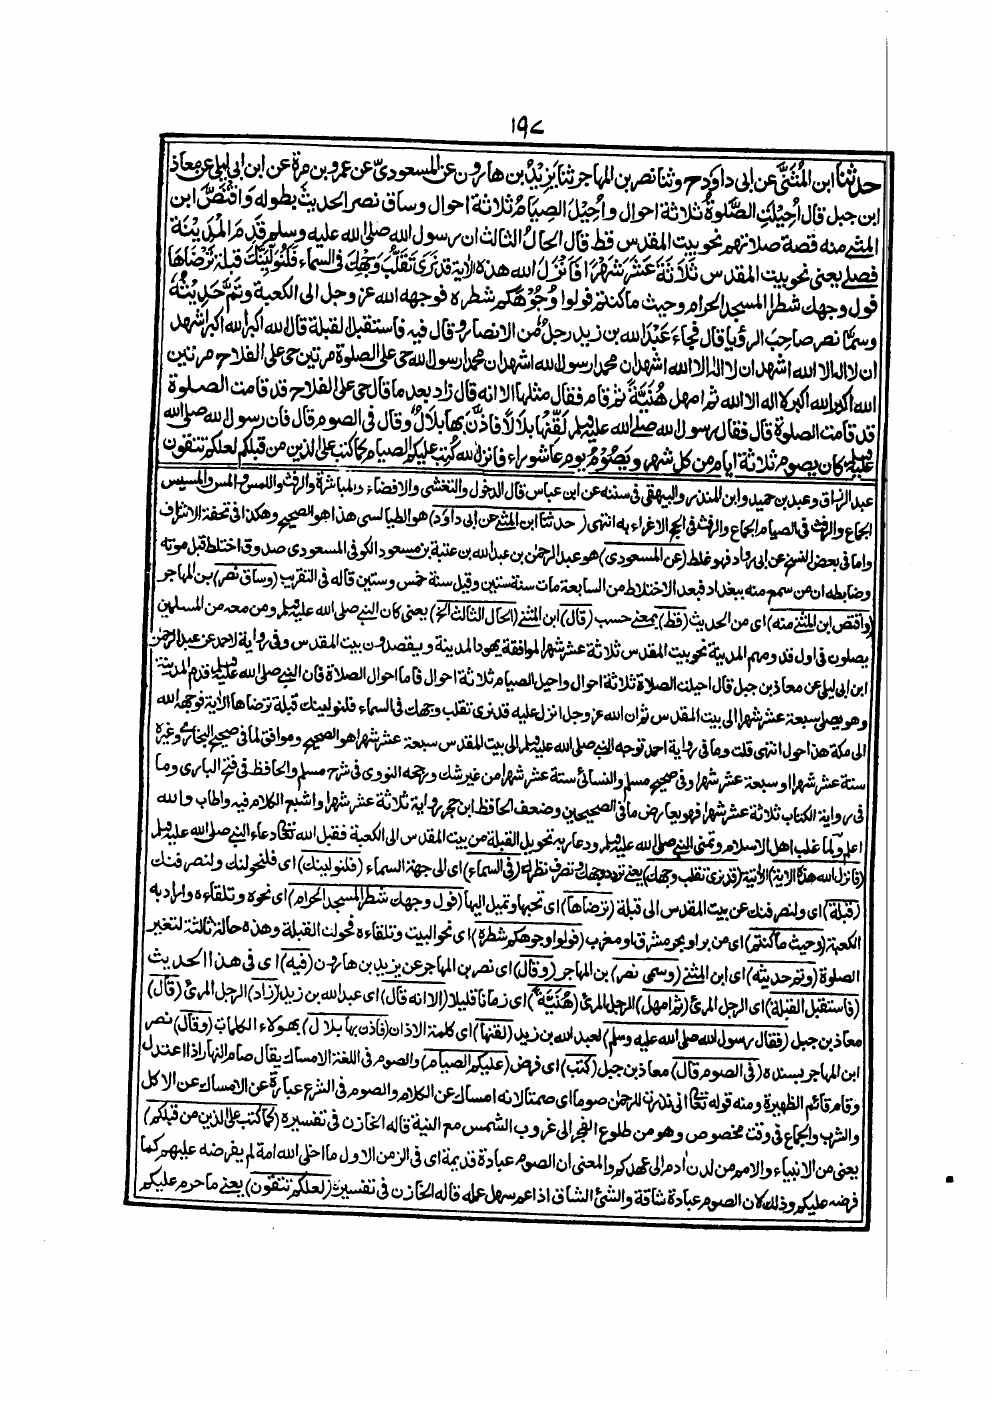 ١٩٧
حدثنا ابن المُثَنَّى عن ابى داود ح وثنا نصر بن المهاجر ثنا يَزِيْدُ بن هارون عن المسعودى عن عمرو بن مرة عن ابن ابى ليلى عن معاذ
ابن جبل قال اُحِيْلَتِ الصَّلٰوةُ ثلاثة احوال واُحِيْلَ الصِيَامُ ثلاثة احوال وساق نصر الحديث بطوله وَاقْتَصَّ ابن
المثنى منه قصة صلاتهم نحو بيت المقدس قط قال الحالُ الثالث ان رسول الله صلى الله عليه وسلم قَدِمَ المَدِيْنَةَ
فصلى يعنى نحو بيت المقدس ثَلَاثَةَ عَشَرَ شَهْرًا فَاَنْزَلَ الله هذه الاٰية قد نَرٰى تَقَلُّبَ وَجْهِكَ فى السماء فَلَنُوَلِّيَنَّكَ قبلة تَرْضَاهَا
فول وجهك شطر المسجد الحرام وحيث ما كنتم فولوا وُجُوْهَكُم شطره فوجهه الله عز وجل الى الكعبة وتَمَّ حَدِيْثُهُ
وسمى نصر صاحبَ الرؤيا قال فجاء عَبْدُ الله بن زيد رجلٌ من الانصار وقال فيه فاستقبل القبلة قال الله اكبر الله اكبر اشهد
ان لا اله الا الله اشهد ان لا اله الا الله اشهد ان محمدا رسول الله اشهد ان محمدا رسول الله حى على الصلوة مرتين حى على الفلاح مرتين
الله اكبر الله اكبر لا اله الا الله ثم امهل هُنَيَّةً ثم قام فقال مثلها الا انه قال زاد بعد ما قال حى على الفلاح قد قامت الصلوة
قد قامت الصلوة قال فقال رسول الله صلى الله عليه وسلم لَقِّنْهَا بلالًا فاَذَّنَ بها بلالٌ وقال فى الصوم قال فان رسول الله صلى الله
عليه وسلم كان يصوم ثلاثة ايام من كل شهر ويَصُوْمُ يوم عاشوراء فانزل الله كُتِبَ عليكم الصيام كما كتب على الذين من قبلكم لعلكم تتقون
عبد الرزاق وعبد بن حميد وابن المنذر والبيهقى فى سننه عن ابن عباس قال الدخول والتغشى والافضاء والمباشرة والرفث واللمس والمس والمسيس
الجماع والرفث فى الصيام الجماع والرفث فى الحج الاغراء به انتهى (حدثنا ابن المثنى عن ابى داود) هو الطيالسى هذا هو الصحيح وهكذا فى تحفة الاشراف
واما فى بعض النسخ عن ابى رواد فهو غلط (عن المسعودى) هو عبد الرحمٰن بن عبد الله بن عتبة بن مسعود الكوفى المسعودى صدوق اختلط قبل موته
وضابطه ان من سمع منه ببغداد فبعد الاختلاط من السابعة مات سنة ستين وقيل سنة خمس وستين قاله فى التقريب (وساق نصر) بن المهاجر
(واقتص ابن المثنى منه) اى من الحديث (قط) بمعنى حسب (قال) ابن المثنى (الحال الثالث الخ) يعنى كان النبى صلى الله عليه وسلم ومن معه من المسلمين
يصلون فى اول قدومهم المدينة نحو بيت المقدس ثلاثة عشر شهرا لموافقة يهود المدينة ويقصدون بيت المقدس وفى رواية لاحمد عن عبد الرحمٰن
ابن ابى ليلى عن معاذ بن جبل قال احيلت الصلاة ثلاثة احوال واحيل الصيام ثلاثة احوال فاما احوال الصلاة فان النبى صلى الله عليه وسلم قدم المدينة
وهو يصلى سبعة عشر شهرا الى بيت المقدس ثم ان الله عز وجل انزل عليه قد نرى تقلب وجهك فى السماء فلنولينك قبلة ترضاها الاٰية فوجهه الله
الى مكة هذا حول انتهى قلت وما فى رواية احمد توجه النبى صلى الله عليه وسلم الى بيت المقدس سبعة عشر شهرا هو الصحيح وموافق لما فى صحيح البخارى وغيره
ستة عشر شهرا او سبعة عشر شهرا وفى صحيح مسلم والنسائى ستة عشر شهرا من غير شك ورجحه النووى فى شرح مسلم والحافظ فى فتح البارى وما
فى رواية الكتاب ثلاثة عشر شهرا فهو يعارض ما فى الصحيحين وضعف الحافظ ابن حجر رواية ثلاثة عشر شهرا واشبع الكلام فيه واطاب والله
اعلم ولما غلب اهل الاسلام وتمنى النبى صلى الله عليه وسلم ودعا ربه تحويل القبلة من بيت المقدس الى الكعبة فقبل الله تعالى دعاء النبى صلى الله عليه وسلم
(فانزل الله هذه الاٰية) الاٰتية (قد نرى تقلب وجهك) يعنى تردد وجهك وتصرف نظرك (فى السماء) اى الى جهة السماء (فلنولينك) اى فلنحولنك ولنصرفنك
(قبلة) اى ولنصرفنك عن بيت المقدس الى قبلة (ترضاها) اى تحبها وتميل اليها (فول وجهك شطر المسجد الحرام) اى نحوه وتلقاءه واراد به
الكعبة (وحيث ما كنتم) اى من بر او بحر مشرق او مغرب (فولوا وجوهكم شطره) اى نحو البيت وتلقاءه فحولت القبلة وهذه حالة ثالثة لتغير
الصلوة (وتم حديثه) اى ابن المثنى (وسمى نصر) بن المهاجر (وقال) اى نصر بن المهاجر عن يزيد بن هارون (فيه) اى فى هذا الحديث
(فاستقبل القبلة) اى الرجل المرئى (ثم امهل) الرجل المرئى (هُنَيَّةً) اى زمانا قليلا (الا انه قال) اى عبد الله بن زيد (زاد) الرجل المرئى (قال)
معاذ بن جبل (فقال رسول الله صلى الله عليه وسلم) لعبد الله بن زيد (لقنها) اى كلمة الاذان (فاذن بها بلال) بهولاء الكلمات (وقال) نصر
ابن المهاجر بسنده (فى الصوم قال) معاذ بن جبل (كتب) اى فرض (عليكم الصيام) والصوم فى اللغة الامساك يقال صام النهار اذا اعتدل
وقام قائم الظهيرة ومنه قوله تعالى انى نذرت للرحمٰن صوما اى صمتا لانه امساك عن الكلام والصوم فى الشرع عبارة عن الامساك عن الاكل
والشرب والجماع فى وقت مخصوص وهو من طلوع الفجر الى غروب الشمس مع النية قاله الخازن فى تفسيره (كما كتب على الذين من قبلكم)
يعنى من الانبياء والامم من لدن اٰدم الى عهدكم والمعنى ان الصوم عبادة قديمة اى فى الزمن الاول ما اخلى الله امة لم يفرضه عليهم كما
فرضه عليكم وذلك لان الصوم عبادة شاقة والشئ الشاق اذا عم سهل عمله قاله الخازن فى تفسيره (لعلكم تتقون) يعنى ما حرم عليكم